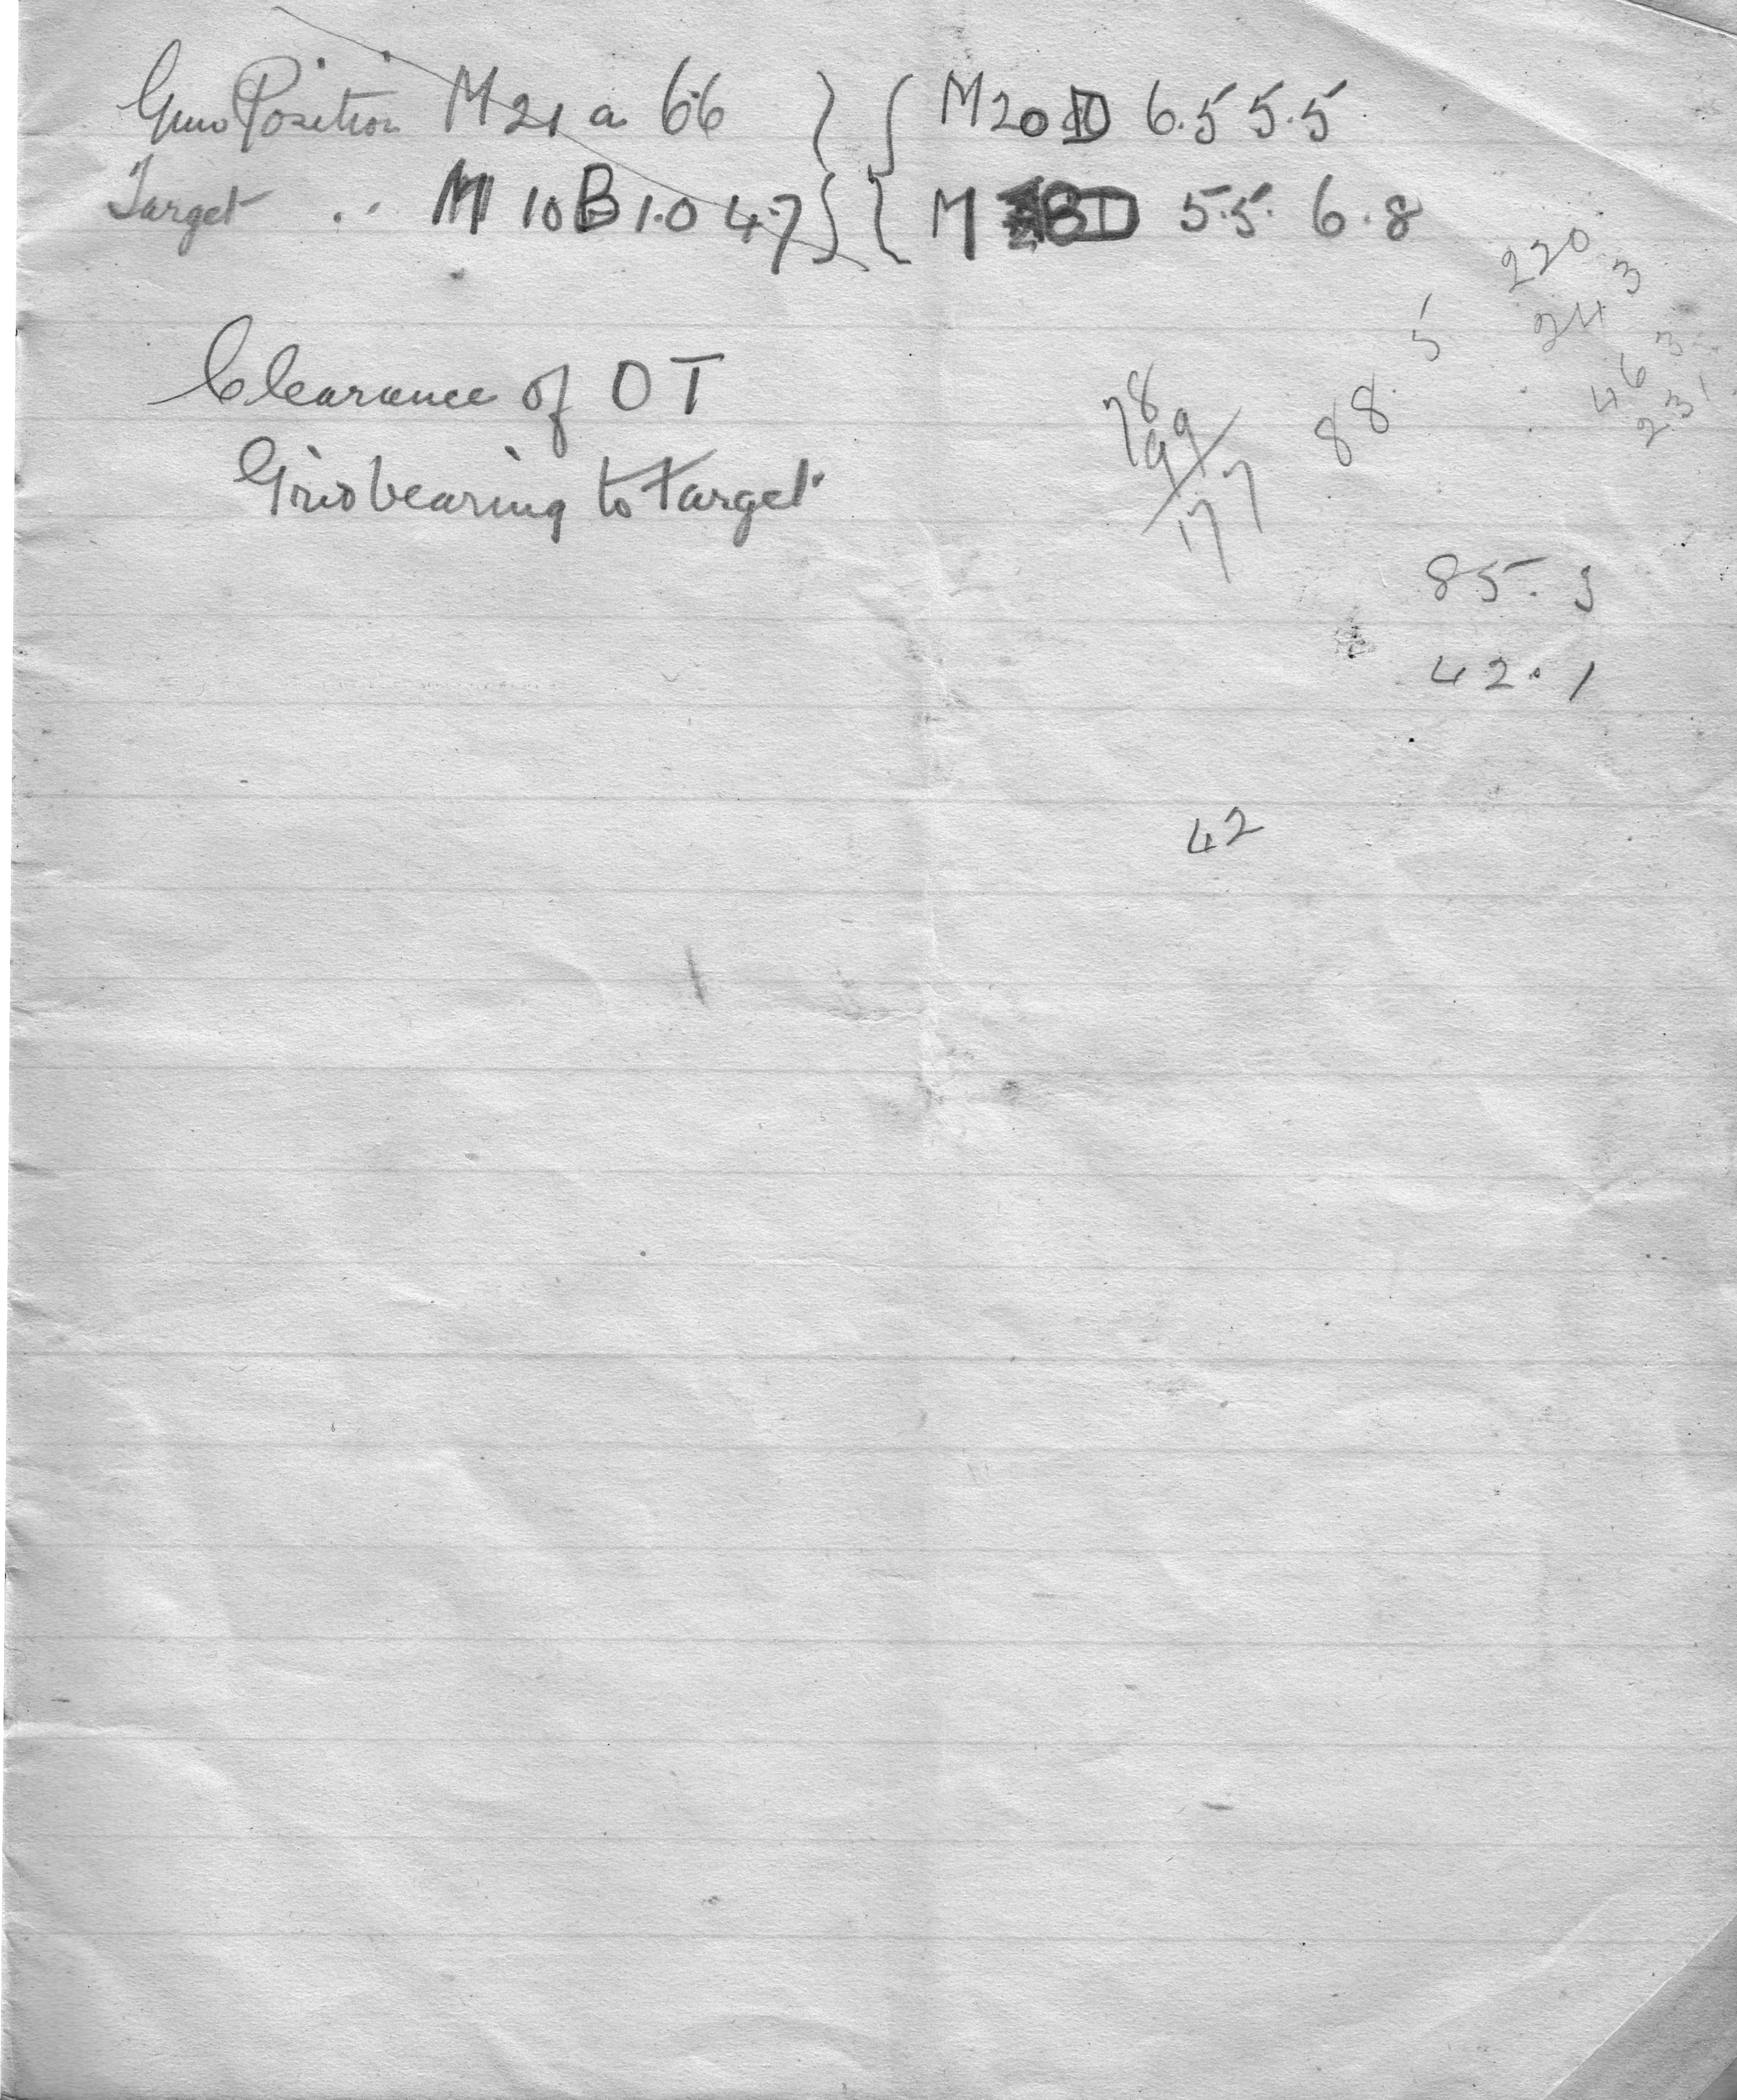 Gun Position M 21 a 6.6 } { M 20 D 6.5 5.5
Target .. M 10 B 1.0 4.7 } { M D 5.5. 6.8
Clearance of OT
Grid bearing to target
220
243
463
231
5
88
78
99
177
85. 3
42. 1
42